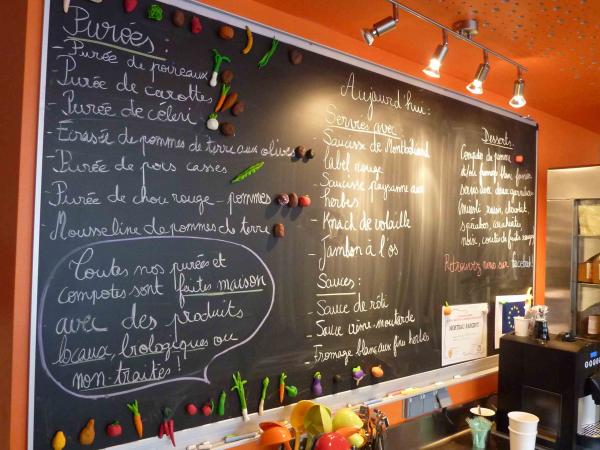 Purées :
- Purée de poireaux
- Purée de carotte
- Purée de céleri
- Ecrasée de pommes de terre aux olives
- Purée de pois cassés
- Purée de chou rouge - pommes
- Mousseline de pommes de terre
Toutes nos purées et
compotes sont faites maison
avec des produits
locaux, biologiques ou
non-traités !
Aujourd'hui :
Servies avec
- Saucisse de Montbéliard
label rouge
- Saucisse paysanne aux
herbes
- Knack de volaille
- Jambon à l'os
Sauces :
- Sauce de rôti
- Sauce crème-moutarde
- Fromage blanc aux fines herbes
Desserts :
Compotes de pomme
et/ou fromage blanc fermier
Muesli, raisin, chocolat,
spéculoos, cacahuètes,
noix, coulis de fruits rouges
Retrouvez nous sur facebook!